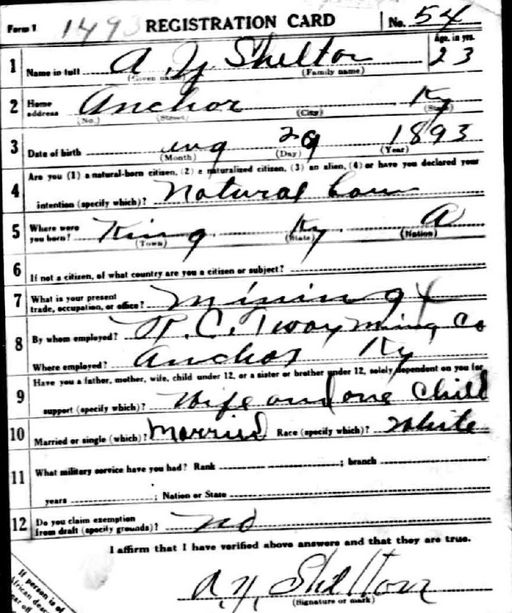 Form 1 149 REGISTRATION CARD No. 54
1 Name in full A. Y. Shelton Age, in yrs. 23
(Given name) (Family name)
2 Home address Anchor Ky
(No.) (Street) (City) (State)
3 Date of birth aug 29 1893
(Month) (Day) (Year)
Are you (1) a natural-born citizen, (2) a naturalized citizen, (3) an alien, (4) or have you declared your
4 intention (specify which)? Natural born
5 Where were you born? King Ky A
(Town) (State) (Nation)
6 If not a citizen, of what country are you a citizen or subject?
7 What is your present trade, occupation, or office? mining
8 By whom employed? R. C. Tway Ming Co
Where employed? Anchor Ky
Have you a father, mother, wife, child under 12, or a sister or brother under 12, solely dependent on you for
9 support (specify which)? Wife and one Child
10 Married or single (which)? Married Race (specify which)? White
11 What military service have you had? Rank ; branch
years ; Nation or State
12 Do you claim exemption from draft (specify grounds)? no
I affirm that I have verified above answers and that they are true.
A. Y. Shelton
(Signature or mark)
If person is of
African desc